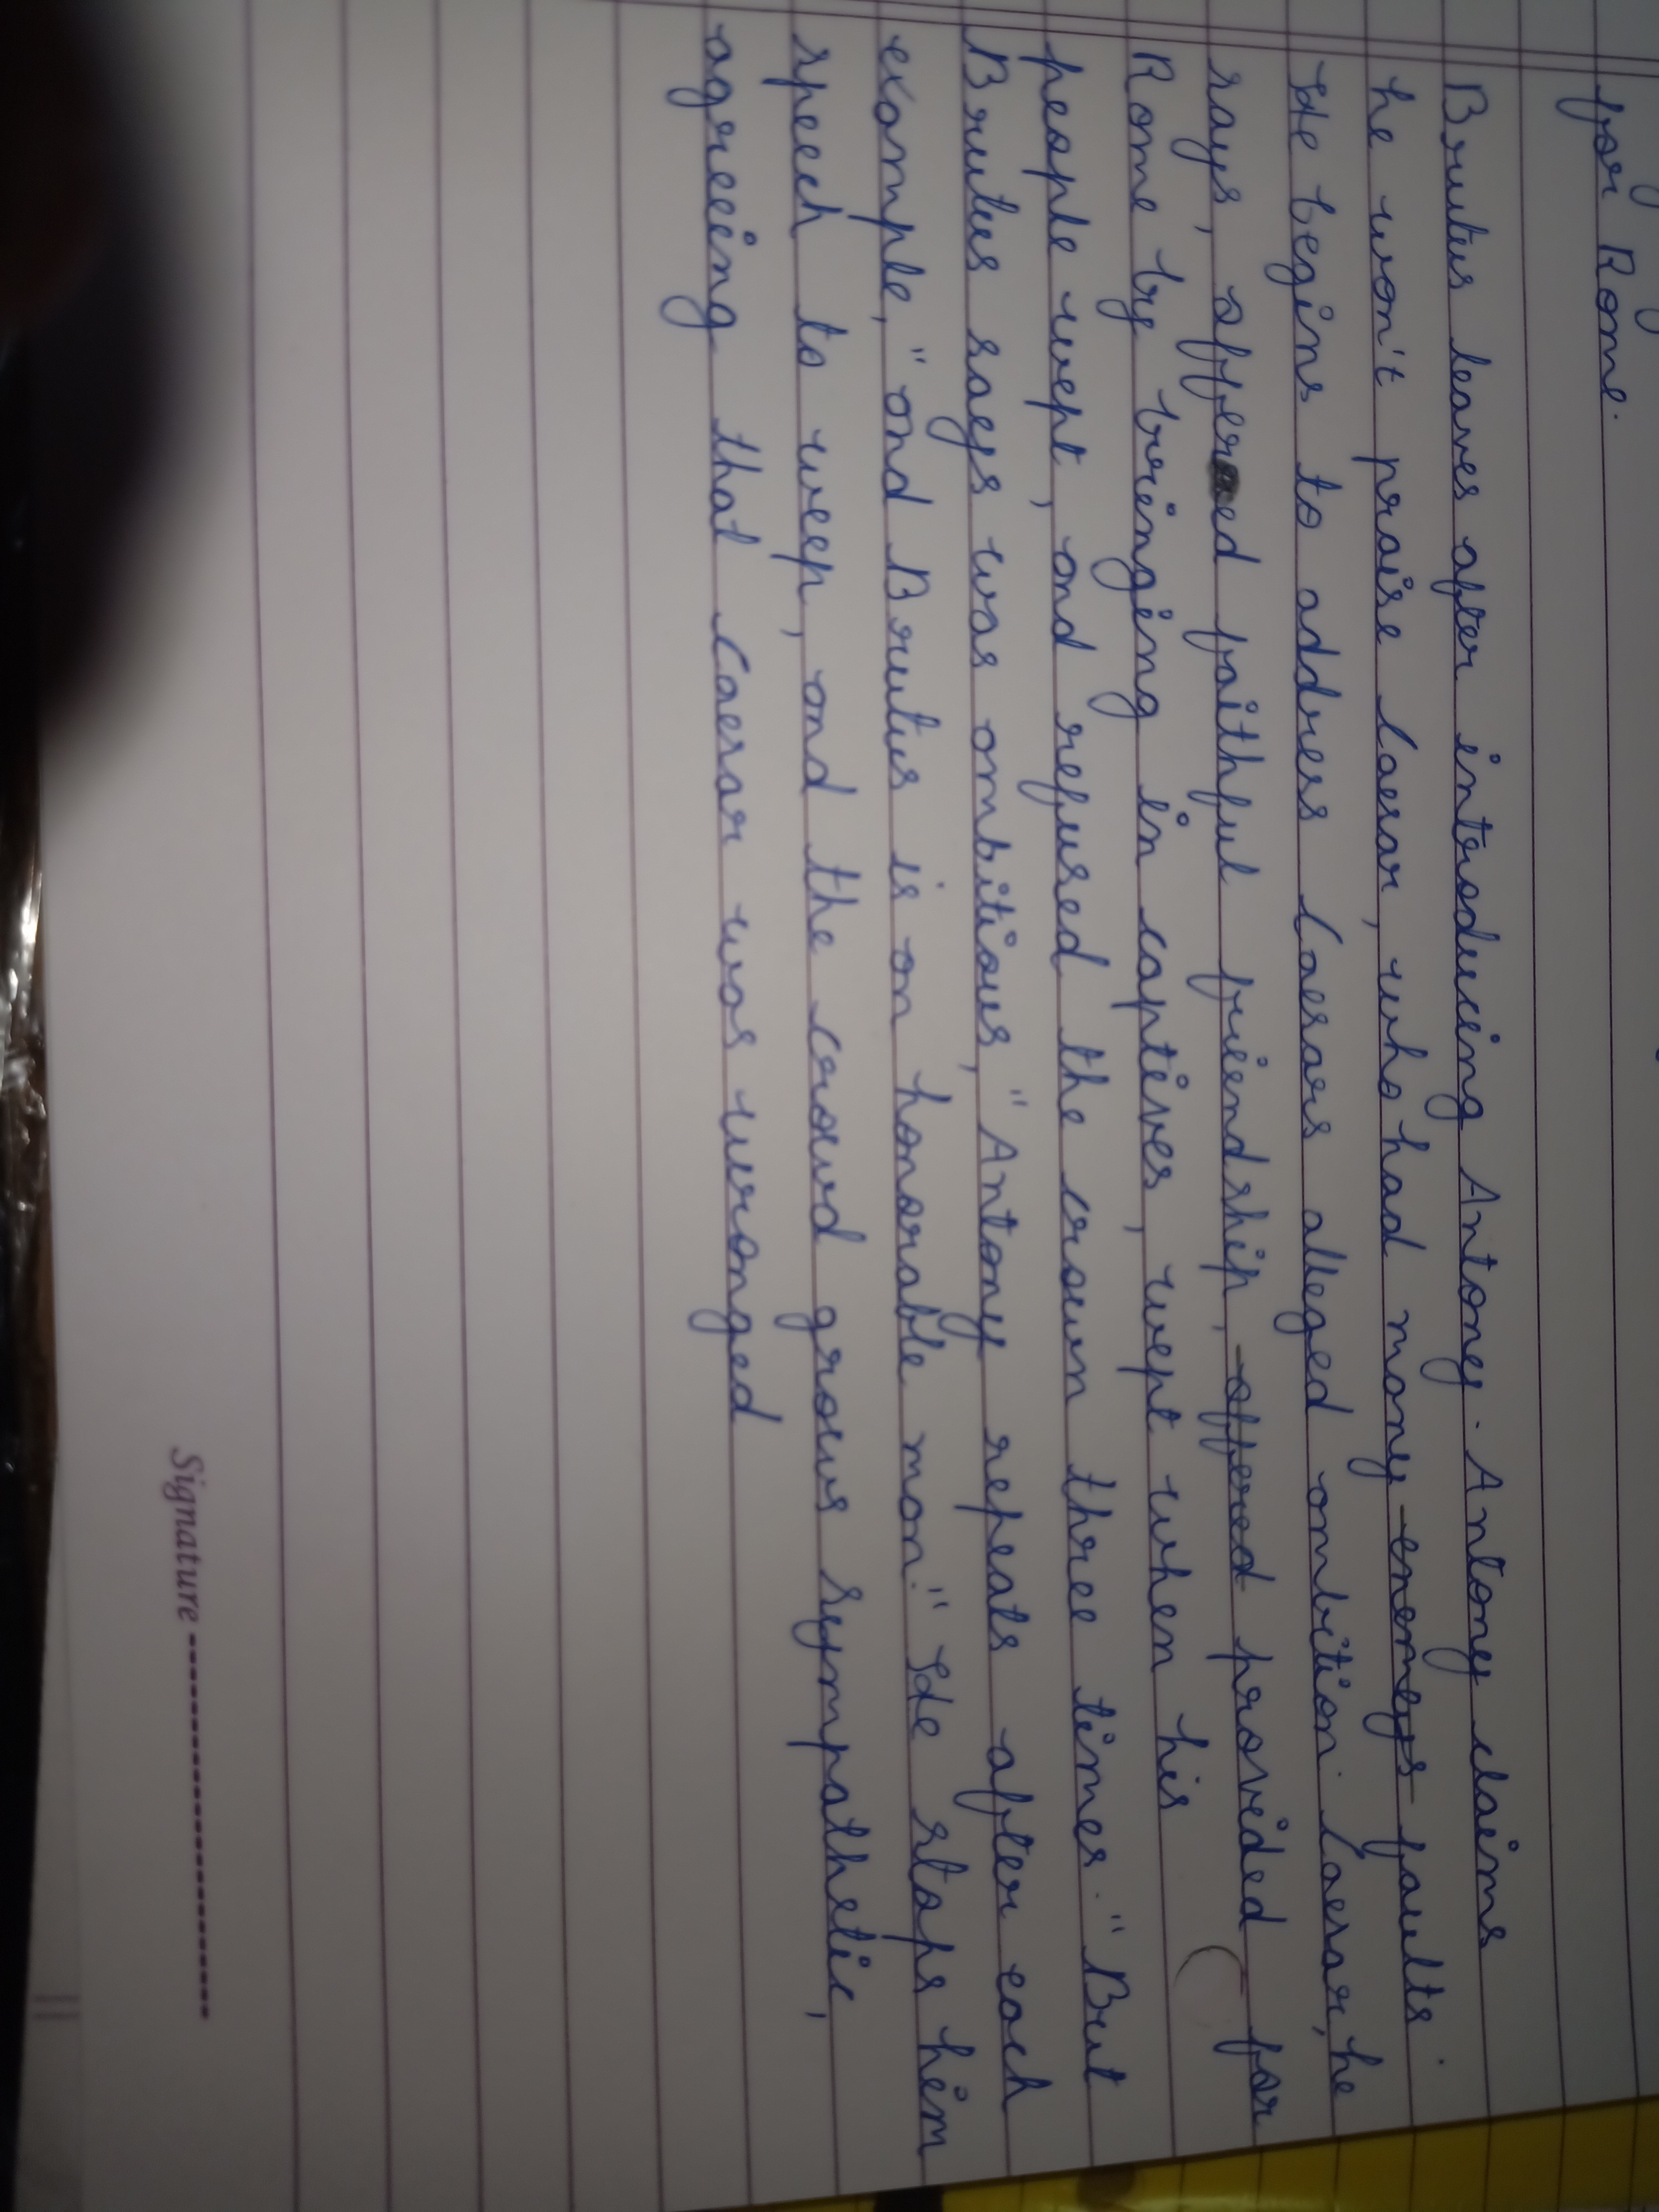 for Rome.
Brutus leaves after introducing Antony. Antony claims
he won't praise Caesar, who had many enemeys faults.
He begins to address Caesars alleged ambition. Caesar, he
says, offered faithful friendship, offered provided for
Rome by bringing in captives, wept when his
people wept, and refused the crown three times. "But
Brutus says was ambitious," Antony repeats after each
example, "and Brutus is an honorable man." He stops him
speech to weep, and the crowd grows sympathetic,
agreeing that Caesar was wronged
Signature